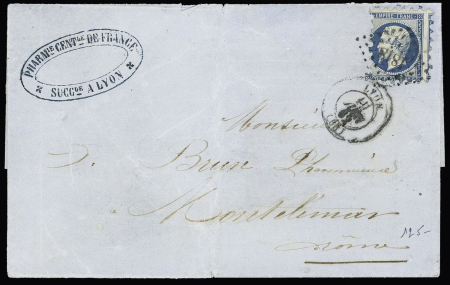 PHARMie CENTle DE FRANCE
SUCCle A LYON
EMPIRE FRANC
LYON
Monsieur
Brun Pharmacien
Montélimar
Drôme
125-